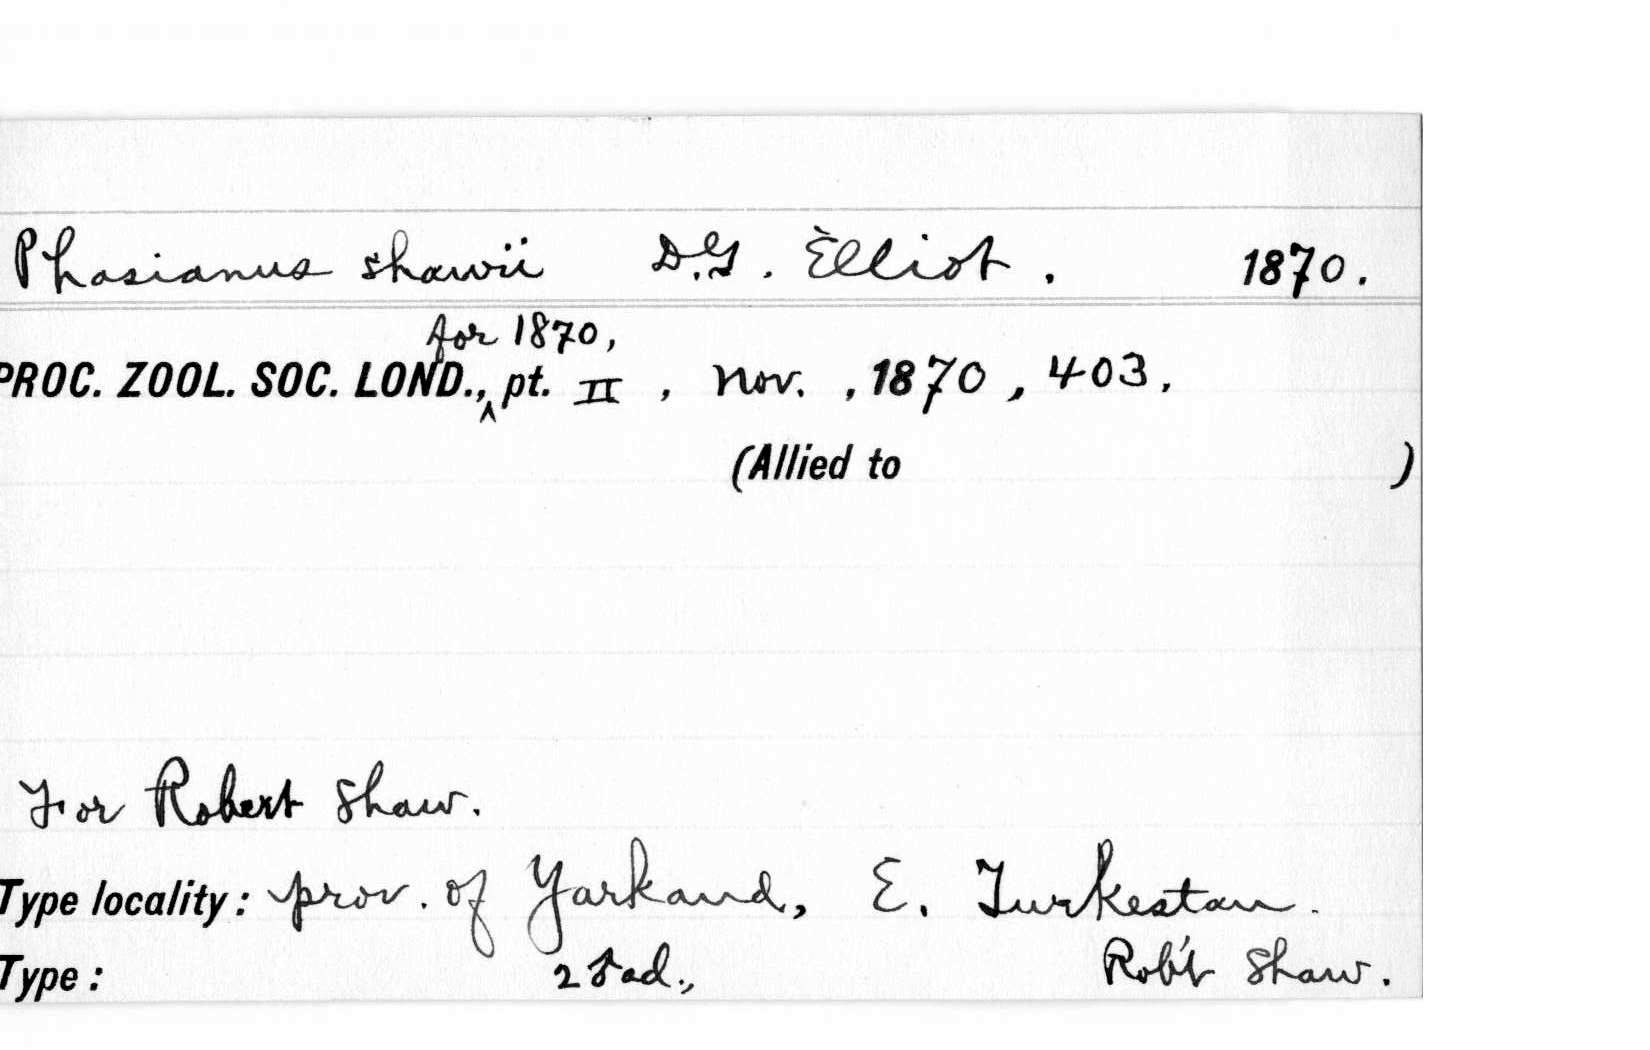 Phasianus shawii D.G. Elliot. 1870.
for 1870,
PROC. ZOOL. SOC. LOND., ^ pt. II, Nov., 1870, 403.
(Allied to )
For Robert Shaw.
Type locality: prov. of Yarkand, E. Turkestan.
Type: 2 ad., Rob't Shaw.